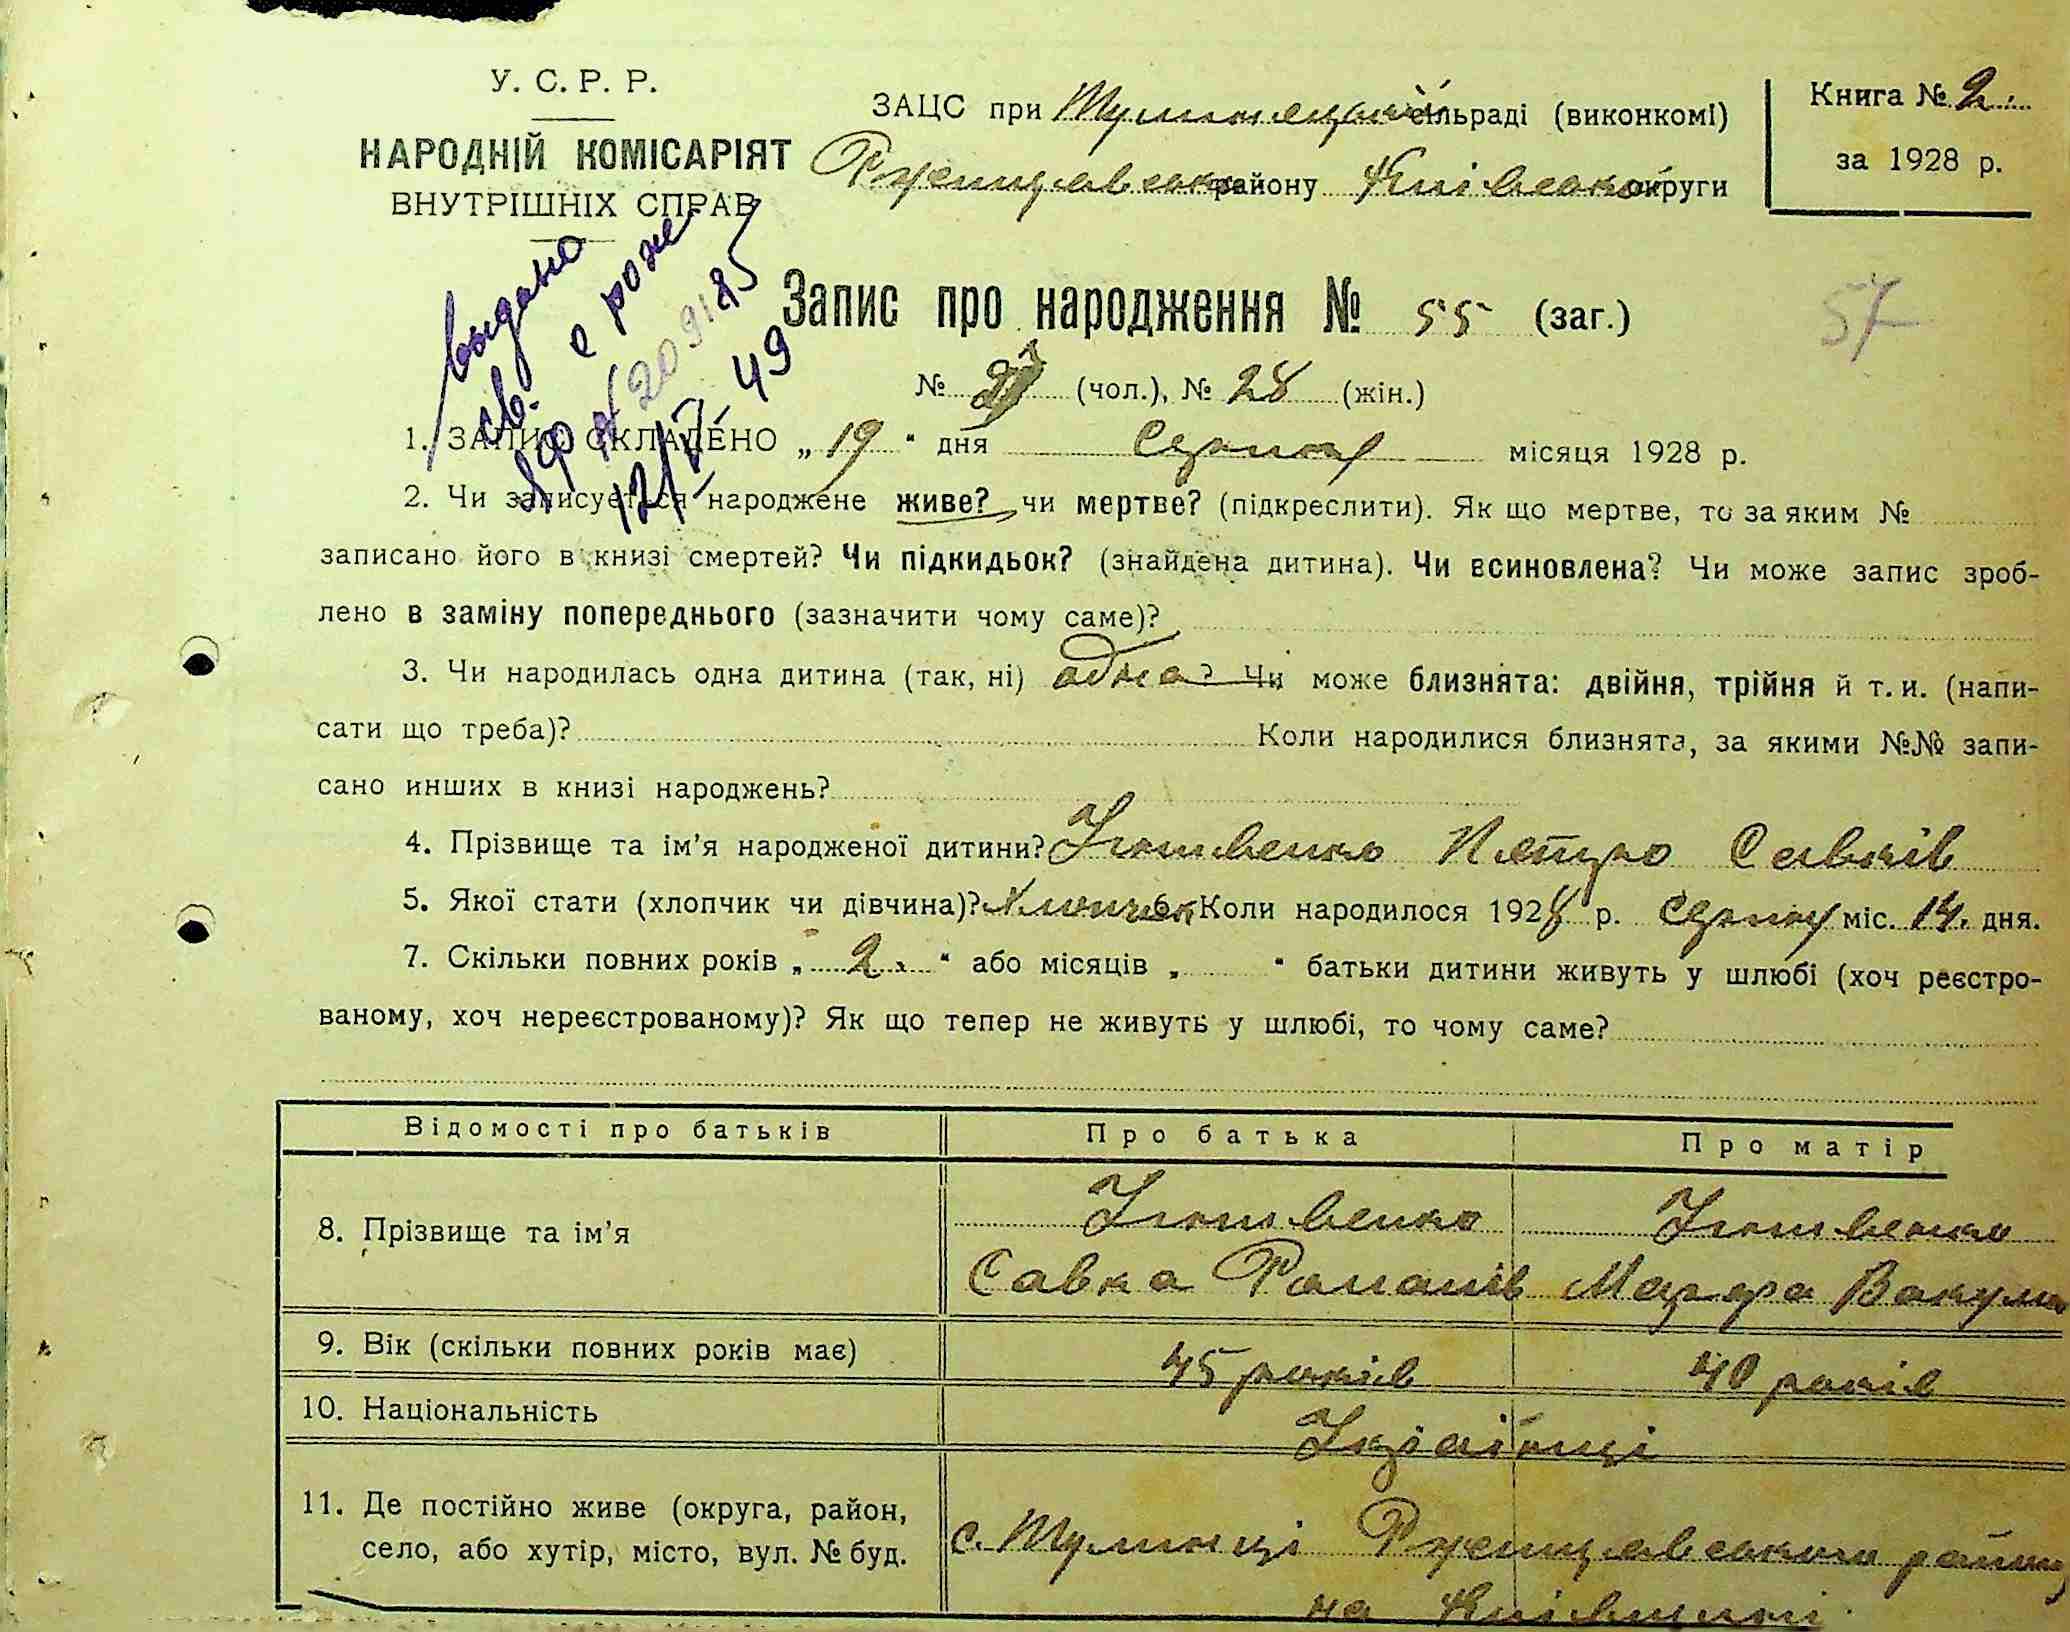 У. С. Р. Р.
НАРОДНІЙ КОМІСАРІЯТ
ВНУТРІШНІХ СПРАВ
ЗАЦС при Тулинецькій сільраді (виконкомі)
Ржищевського району Київської округи
Книга № 2.
за 1928 р.
выдано
св. о рожд
12/V-49
Запис про народження № 55 (заг.)
57
№ 27 (чол.), № 28 (жін.)
1. ЗАПИС СКЛАДЕНО „ 19 “ дня Серпня місяця 1928 р.
2. Чи записується народжене живе? чи мертве? (підкреслити). Як що мертве, то за яким №
записано його в книзі смертей? Чи підкидьок? (знайдена дитина). Чи всиновлена? Чи може запис зроб-
лено в заміну попереднього (зазначити чому саме)?
3. Чи народилась одна дитина (так, ні) одна? Чи може близнята: двійня, трійня й т. и. (напи-
сати що треба)? Коли народилися близнята, за якими №№ запи-
сано инших в книзі народжень?
4. Прізвище та ім’я народженої дитини? Петро Савків
5. Якої стати (хлопчик чи дівчина)? Хлопчик 6. Коли народилося 1928 р. Серпня міс. 14. дня.
7. Скільки повних років „ 2. “ або місяців „ “ батьки дитини живуть у шлюбі (хоч реєстро-
ваному, хоч нереєстрованому)? Як що тепер не живуть у шлюбі, то чому саме?
Відомості про батьків Про батька Про матір
8. Прізвище та ім’я
Савка Романів Марфа
9. Вік (скільки повних років має) 45 років 40 років
10. Національність Українці
11. Де постійно живе (округа, район,
село, або хутір, місто, вул. № буд.
с. Тулинці Ржищевського району
на Київщині.